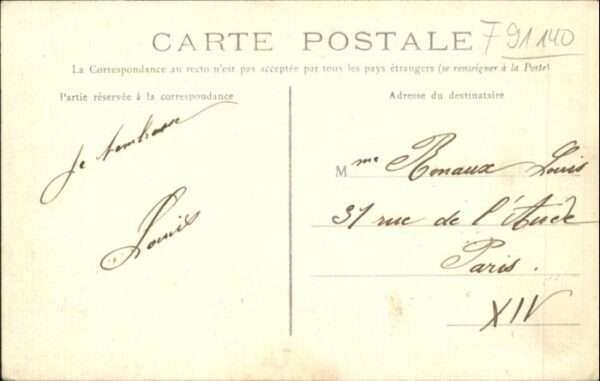 CARTE POSTALE
F 91 140
La Correspondance au recto n'est pas acceptée par tous les pays étrangers (se renseigner à la Poste)
Partie réservée à la correspondance
Je t'embrasse
Louis
Adresse du destinataire
Mme Ronaux Louis
31 rue de l'Aude
Paris.
XIV